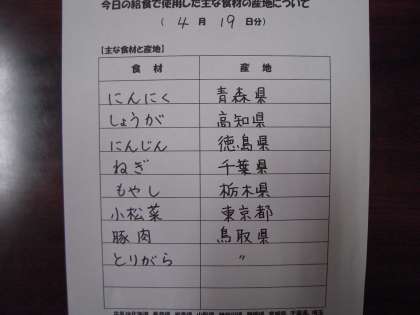 今日の給食で使用した主な食材の産地について
( 4 月 19 日分)
【主な食材と産地】
食材 産地
にんにく 青森県
しょうが 高知県
にんじん 徳島県
ねぎ 千葉県
もやし 栃木県
小松菜 東京都
豚肉 鳥取県
とりがら 〃